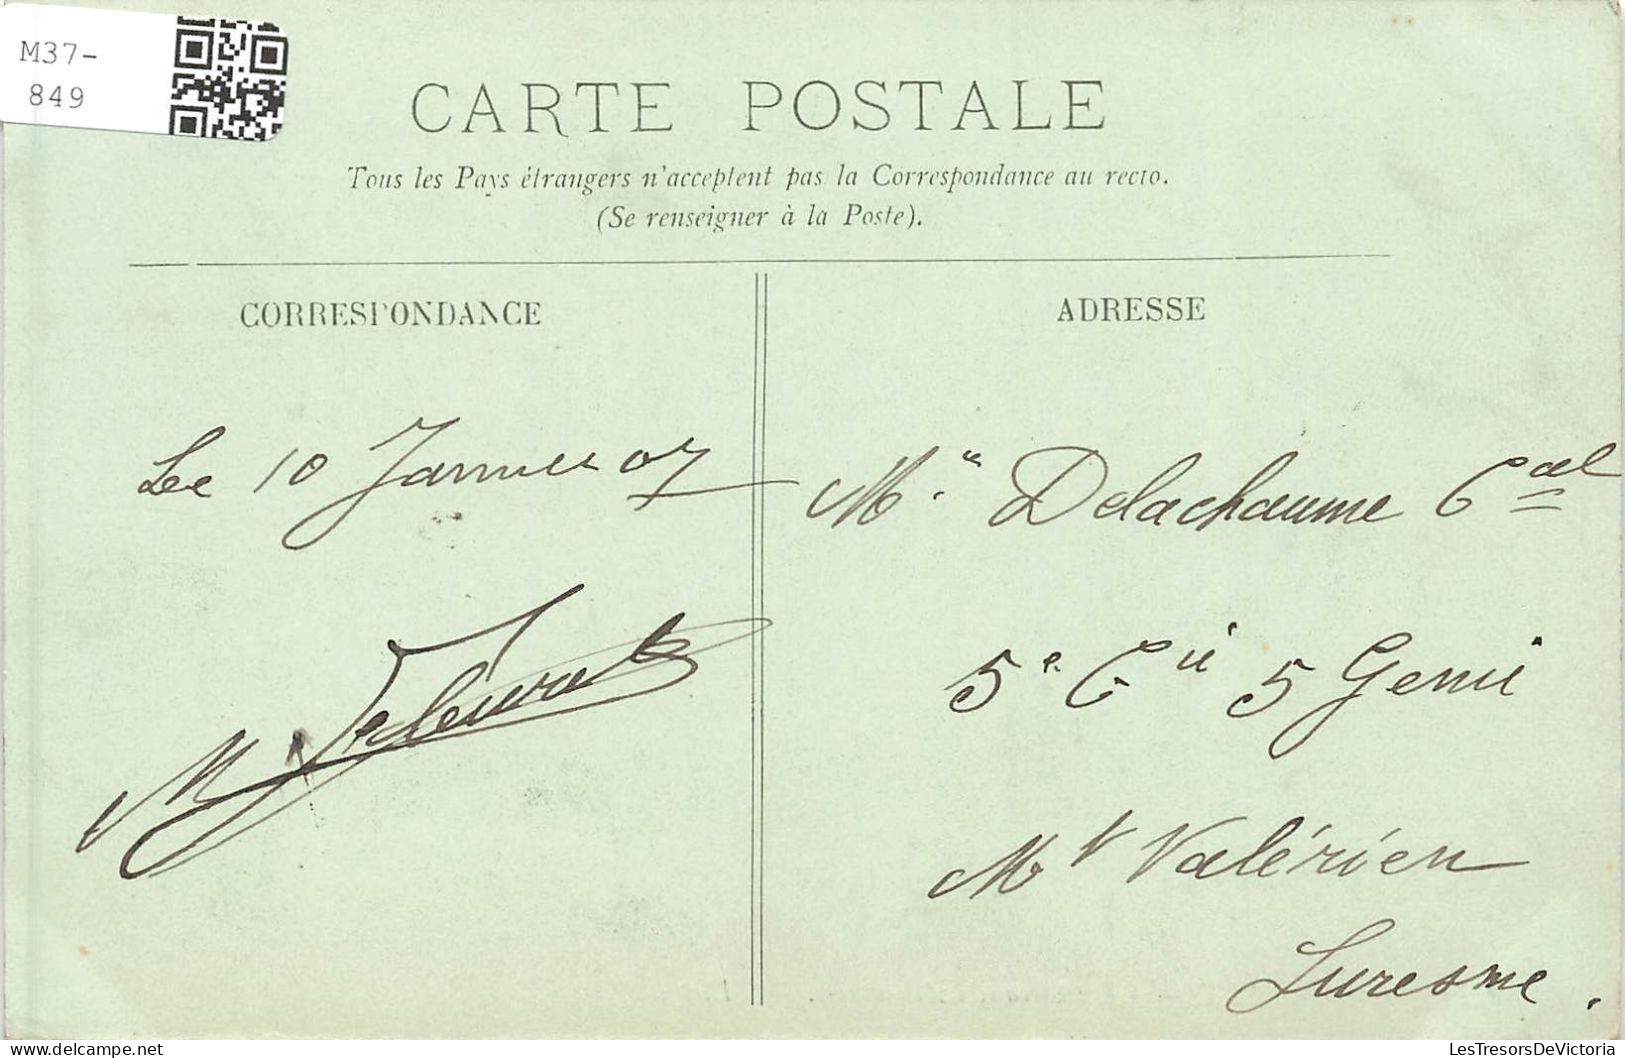 M37-
849
CARTE POSTALE
Tous les Pays étrangers n'acceptent pas la Correspondance au recto.
(Se renseigner à la Poste).
CORRESPONDANCE
Le 10 Janvier 07
M
ADRESSE
Mr Delachaume Cal
5e Cie 5 Genie
Mt Valérien
Suresme.
LesTresorsDeVictoria